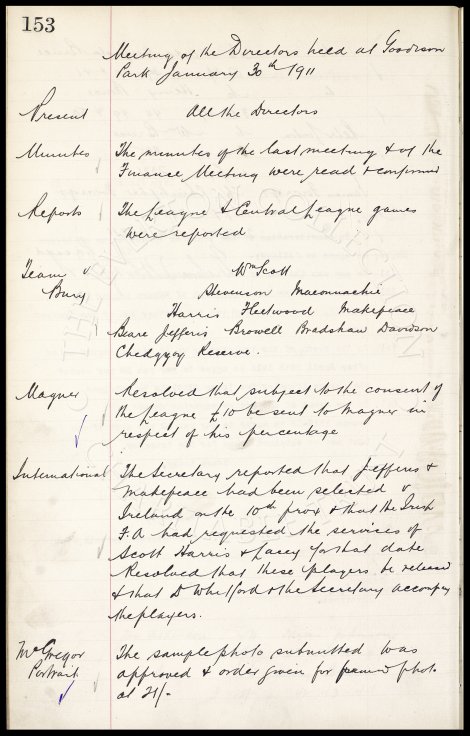 153
Meeting of the Directors held at Goodison
Park January 30th 1911
Present All the Directors
Minutes The minutes of the last meeting & of the
Finance Meeting were read & confirmed
Reports The League & Central League games
were reported
Team v Wm Scott
Bury Stevenson Maconnachie
Harris Fleetwood Makepeace
Beare Jefferis Browell Bradshaw Davidson
Chedgzoy Reserve.
Magner Resolved that subject to the consent of
the League £10 be sent to Magner in
respect of his percentage
International The Secretary reported that Jefferis &
Makepeace had been selected v
Ireland on the 10th prox & that the Irish
F.A. had requested the services of
Scott Harris & Lacey for that date
Resolved that these players be released
& that D Whitford & the Secretary accompy
the players.
McGregor The sample photo submitted was
Portrait approved & order given for framed photo
at 21/-